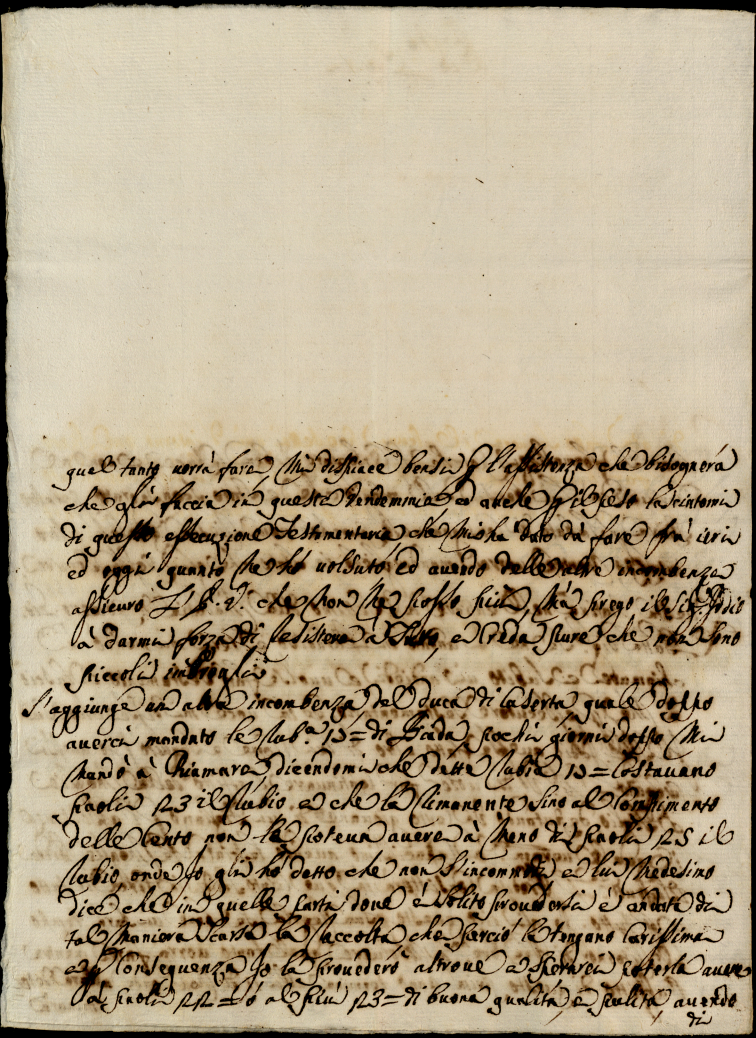 qual tanto vorrà fare, Mi dispiace bensì p l'assistenza che bisognerà
che gli faccia in questa Vendemmia, ed anche p il peso
di questa essecuzione Testamentaria che Mi ha dato da fare frà ieri
ed oggi quanto Ne hò voluto ed avendo delle altre incombenze
assicuro V. P. R. che Non Ne posso più, Mà prego il Sig. Iddio
à darmi forza di resistere à Tutto, e Creda pure che non sono
piccoli imbrogli
S'aggiunge un altra incombenza, del duca di Caserta quale doppo
averci mandato le Rub.a 13= di Biada, pochi giorni doppo Mi
Mandò à Chiamare, dicendomi che dette Rubia 13= Costavano
paoli 123 il Rubio e che la rimanente sino al Compimento
delle Cento non la poteva avere à Meno di paoli 125 il
Rubio, onde Io gli hò detto che non s'incommodi e lui Medesimo
dice che in quelle parti dove è solito provedersi è andata di
tal Maniera scarsa la Raccolta, che perciò le tengano Carissima
e p Conseguenza Io la provederò altrove e sperarei poterla avere
à paoli 122= ò al più 123= di buona qualità, e pulita avendo
di